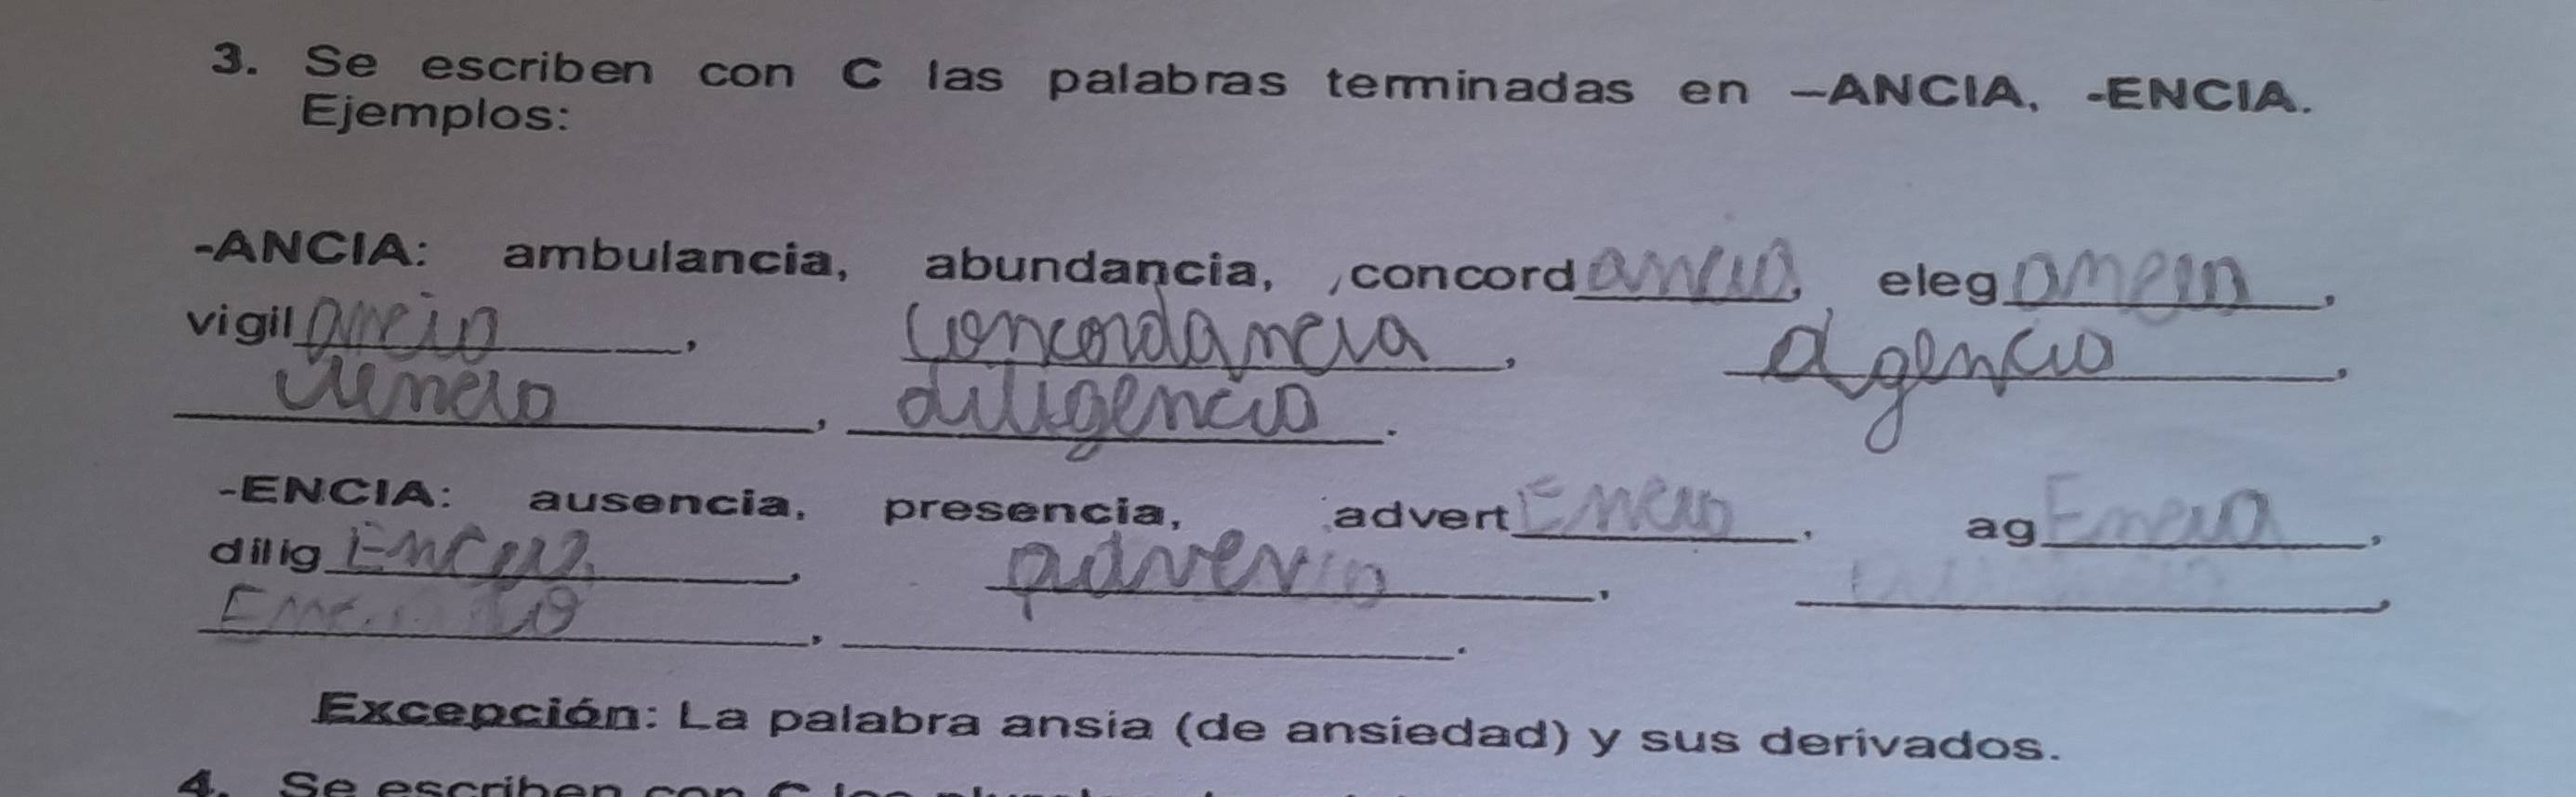 3. Se escriben con C las palabras terminadas en –ANCIA, -ENCIA.
Ejemplos:
-ANCIA: ambulancia, abundancia, ,concordancia, elegancia,
vigilancia, concordancia, agencia,
diligencia.
-ENCIA: ausencia, presencia, advertEncia, agEncia,
diligEncia,
Excepción: La palabra ansia (de ansiedad) y sus derivados.
4. Se escriben con C